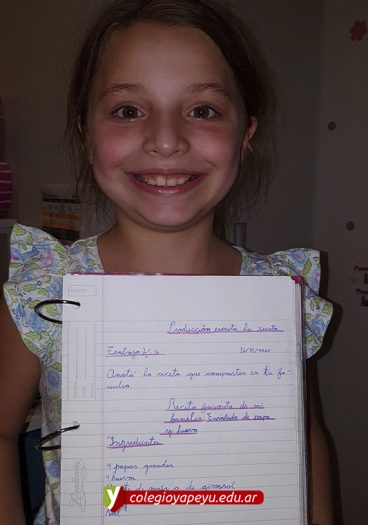 Producción escrita la receta
Trabajo
Anotá: la receta que comparten en tu fa
milia
Receta favorita de mi
familia: Ensalada de papa
y huevo
Ingredientes
4 papas grandes
4 huevos
de girasol
colegioyapeyu.edu.ar
Sal